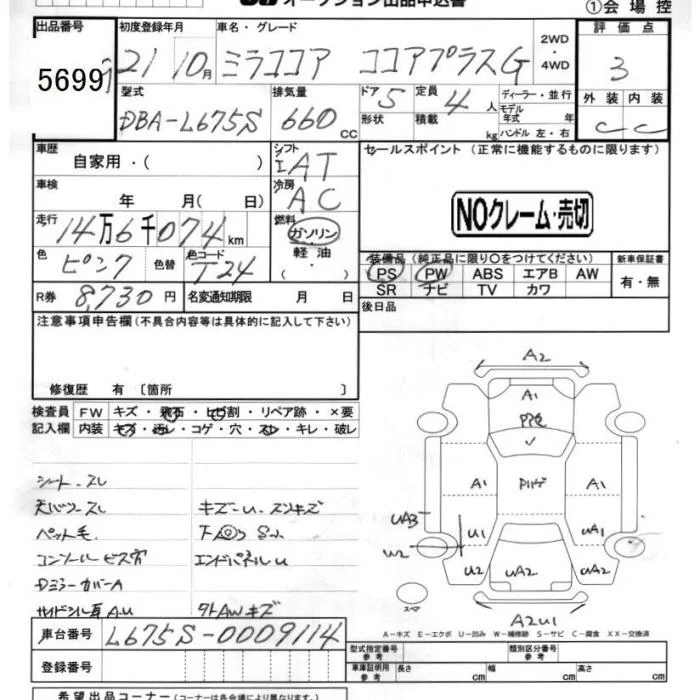 オークション出品申込書
①会場控
出品番号 初度登録年月 車名・グレード 2WD・4WD 評価点
5699 21 10月 ミラココア ココアプラスG 3
型式 排気量 ドア 5 定員 4人 ディーラー・並行 外装 内装
DBA-L675S 660cc 形状 積載 kg モデル年式 年 C C
ハンドル 左・右
車歴 自家用・( ) シフト IAT セールスポイント (正常に機能するものに限ります)
車検 年 月( 日) 冷房 AC
NOクレーム・売切
走行 14万6千074km 燃料 ガソリン
軽油・( )
色 ピンク 色替 色コード T24
装備品 (純正品に限り○をつけてください) 新車保証書
PS PW ABS エアB AW 有・無
SR ナビ TV カワ
R券 8,730円 名変通知期限 月 日 後日品
注意事項申告欄 (不具合内容等は具体的に記入して下さい)
修復歴 有 [箇所 ]
検査員 FW キズ・飛石・ヒビ割・リペア跡・×要
記入欄 内装 キズ・汚レ・コゲ・穴・スレ・キレ・破レ
シート スレ
天バリ スレ キズ-U
ペット毛
コンソール ビス穴 エンドパネルU
Dミラーカバー A
サイドシル耳 A.U 外AWキズ
A2
A1
A1 A1
UA3 U1 UA1
W2 U2 UA2 UA2
A2U1
スペア
A-キズ E-エクボ U-凹み W-補修跡 S-サビ C-腐食 XX-交換済
車台番号 L675S-0009114
型式指定番号 参考 類別区分番号 参考
登録番号
車庫証明用 参考 長さ cm 幅 cm 高さ cm
希望出品コーナー (コーナーは各会場により異なります。)